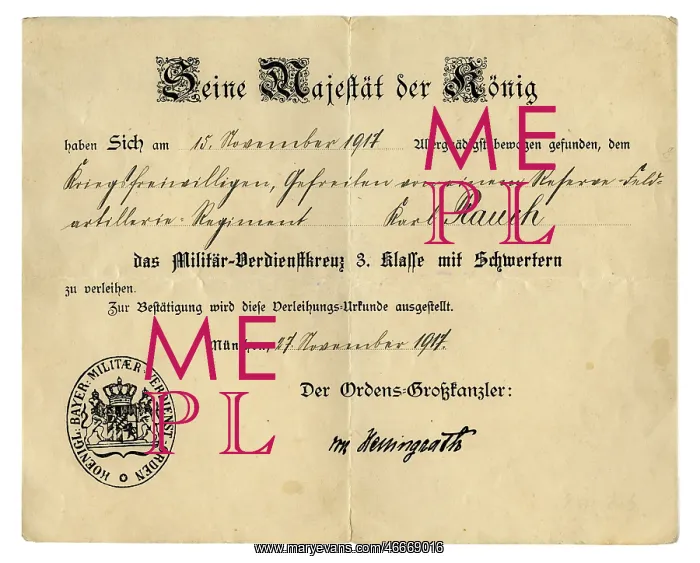 Seine Majestät der König
haben Sich am 15. November 1917 Allergnädigst bewogen gefunden, dem
Kriegsfreiwilligen, Gefreiten von einem Reserve-Feld-
artillerie-Regiment Karl Rauch
das Militär-Verdienstkreuz 3. Klasse mit Schwertern
zu verleihen.
Zur Bestätigung wird diese Verleihungs-Urkunde ausgestellt.
München, 27 November 1917.
Der Ordens-Großkanzler:
KOENIGL: BAYER: MILITÆR-VERDIENST-ORDEN
ME
PL
ME
PL
www.maryevans.com/46669016